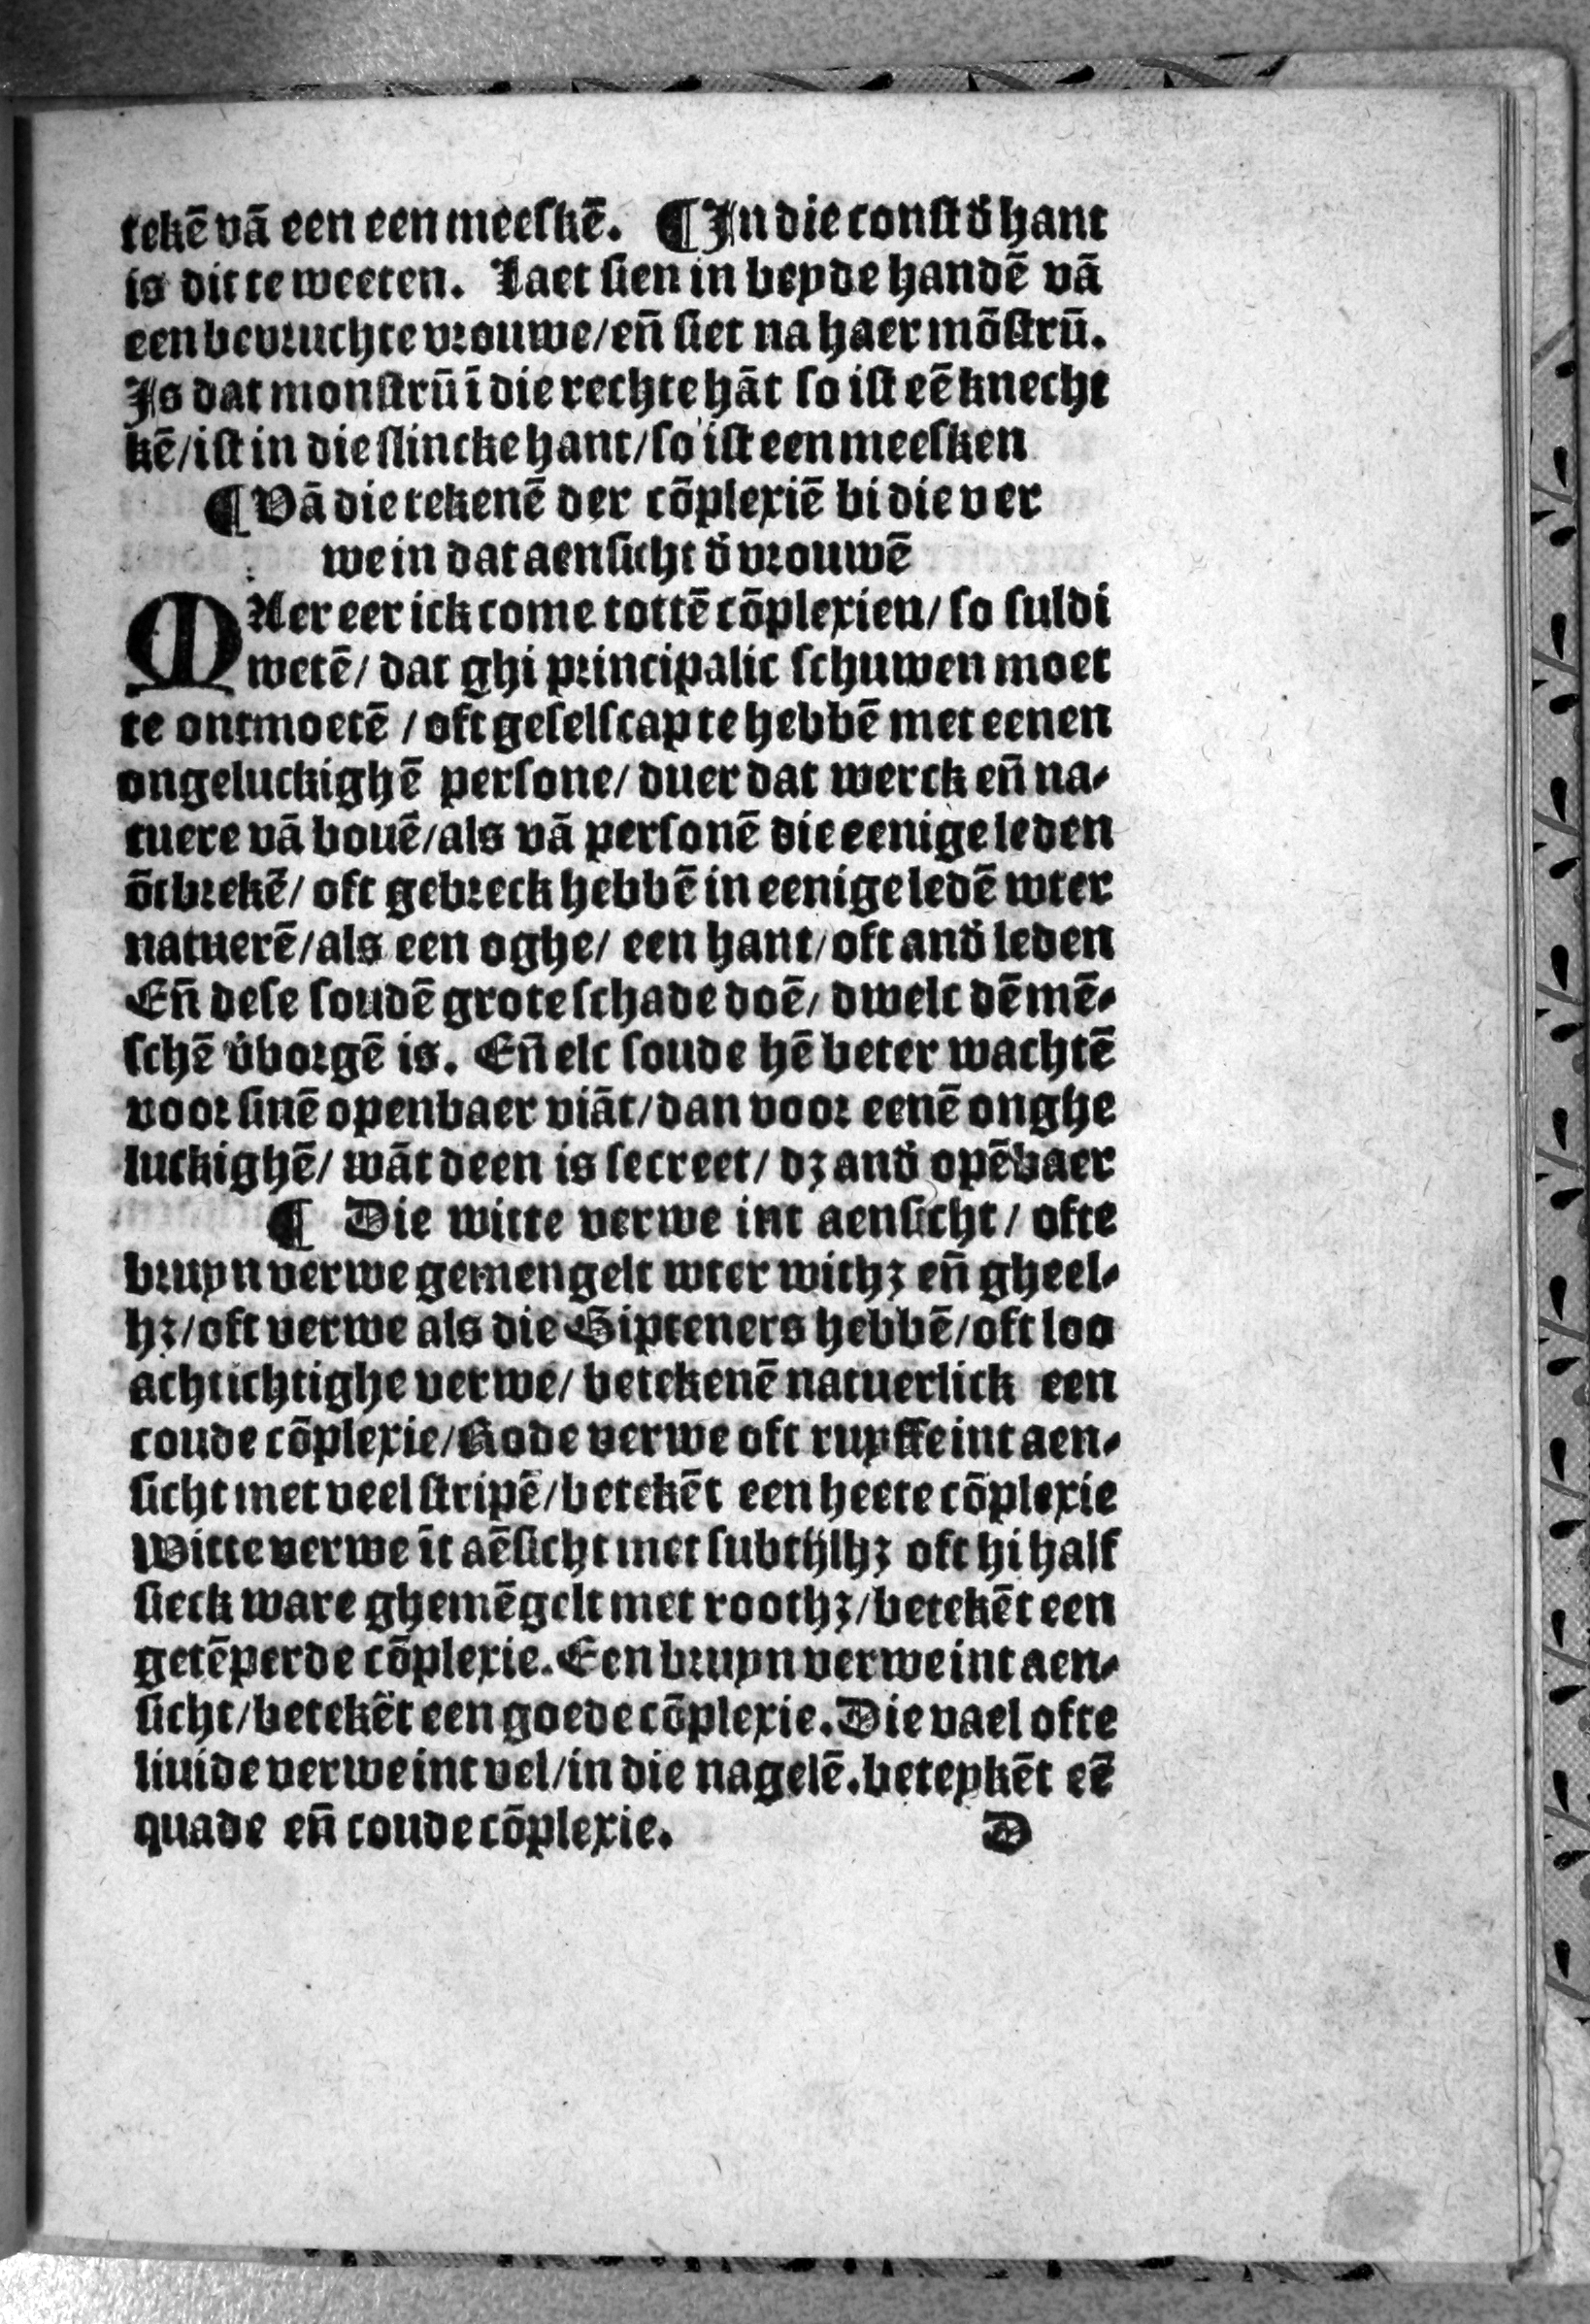 tekē vā een een meeſkē. ¶ In die conſt d̛ hant
is dit te weeten. Laet ſien in beyde handē vā
een bevꝛuchte vꝛouwe/en̄ ſiet na haer mōſtrū.
Is dat monſtrū ī die rechte hāt ſo iſt eē knecht
kē/iſt in die ſlincke hant/ſo iſt een meeſken
¶ Vā die tekenē der cōplexiē bi die ver
we in dat aenſicht d̛ vꝛouwē
MAer eer ick come tottē cōplexien/ ſo ſuldi
wetē/ dat ghi pꝛincipalic ſchuwen moet
te ontmoetē / oft geſelſcap te hebbē met eenen
ongeluckighē perſone/ duer dat werck en̄ na⸗
tuere vā bouē/als vā perſonē die eenige leden
ōtbꝛekē/ oft gebꝛeck hebbē in eenige ledē wter
natuerē/als een oghe/ een hant/oft and̛ leden
En̄ deſe ſoudē grote ſchade doē/ dwelc dē mē⸗
ſchē v̛boꝛgē is. En̄ elc ſoude hē beter wachtē
vooꝛ ſinē openbaer viāt/dan vooꝛ eenē onghe
luckighē/ wāt deen is ſecreet/ dꝫ and̛ opēbaer
¶ Die witte verwe int aenſicht/ ofte
bꝛuyn verwe gemengelt wter withꝫ en̄ gheel⸗
hꝫ/oft verwe als die Gipteners hebbē/oft loo
achtichtighe verwe/ betekenē natuerlick een
coude cōplexie/Rode verwe oft ruyſſe int aen⸗
ſicht met veel ſtripē/betekēt een heete cōplexie
Witte verwe īt aēſicht met ſubtijlhꝫ oft hi half
ſieck ware ghemēgelt met roothꝫ/betekēt een
getēperde cōplexie. Een bꝛuyn verwe int aen⸗
ſicht/betekēt een goede cōplexie. Die vael ofte
liuide verwe int vel/in die nagelē. beteykēt eē
quade en̄ coude cōplexie. D